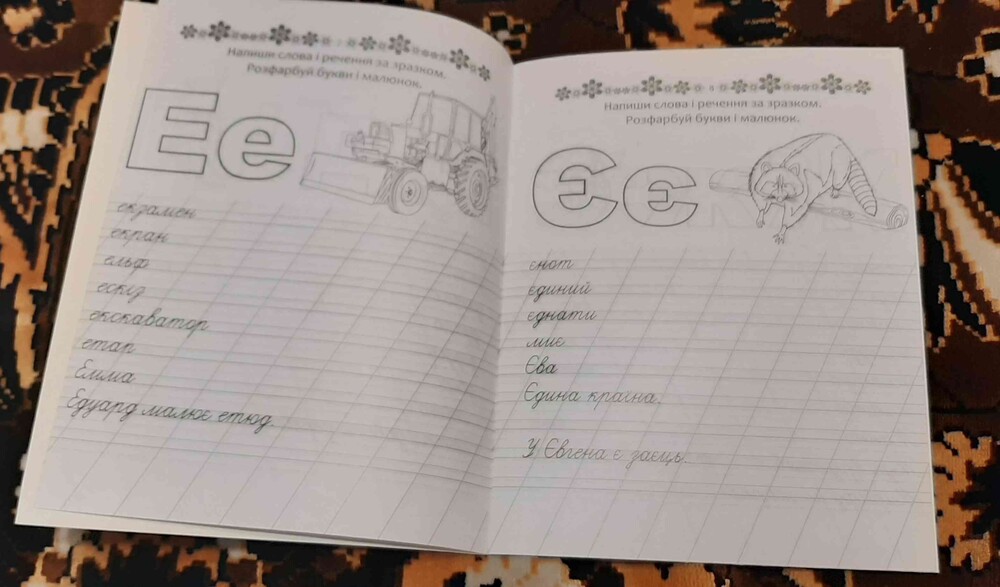 Напиши слова і речення за зразком.
Розфарбуй букви і малюнок.
Ее
екзамен
екран
ельф
ескіз
екскаватор
етап
Емма
Едуард малює етюд.
Напиши слова і речення за зразком.
Розфарбуй букви і малюнок.
Єє
єнот
єдиний
єднати
миє
Єва
Єдина країна.
У Євгена є заєць.